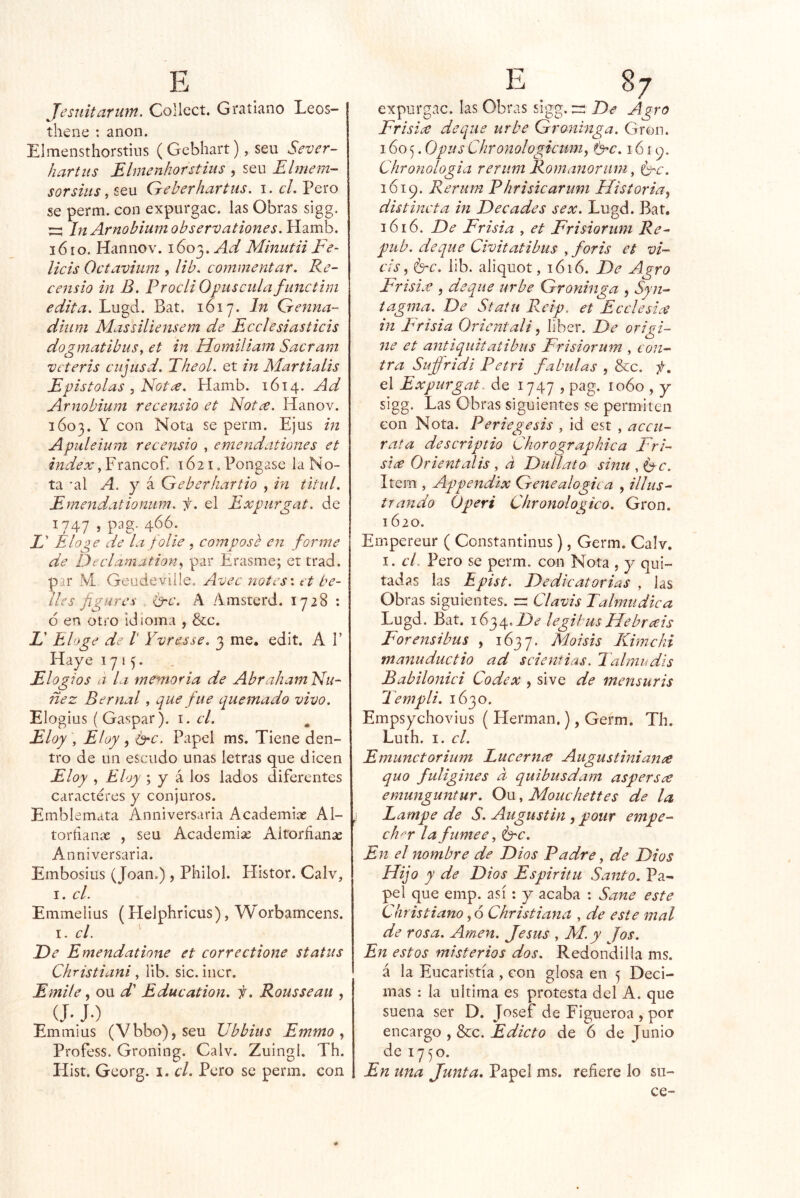 E
Jesuitarum. Collect. Gratiano Leos-
thene : anon.
Elmensthorstius ( Gebhart ) , seu Sever-
hartus Elmenhorstius , seu Elmem-
sorsius, seu Geberhartus. 1. cl. Pero
se perm. con expurgac. las Obras sigg.
= In Arnobium observationes. Hamb.
1610. Hannov. 1603. Ad Minutii Fe-
licis Octavium , lib. commentar. Re-
censio in B. Procli Opuscula functim
edita. Lugd. Bat. 1617. In Genna-
dium Massiliensem de Ecclesiasticis
dogmatibus, et in Homiliam Sacram
veteris cujusd. Theol. et in Martialis
Epistolas , Notæ. Hamb. 1614. Ad
Arnobium recensio et Notæ. Hanov.
1603. Y con Nota se perm. Ejus in
Apuleium recensio , emendationes et
index, Francof. 1621. Pongase la No-
ta al A. y á Geberhartio , in titul.
Emendationum. ỳ. el Expurgat. de
1747 , pag. 466.
L' Eloge de la folie , composè en forme
de Declamation, par Erasme; et trad.
par M. Geudeville. Avec notes: et be-
lles figures . &c. A Amsterd. 1728 :
ó en otro idioma , &c.
L' Eloge de l' Yvresse. 3 me. edit. A l'
Haye 1715.
Elogios á la memoria de Abraham Nu-
ñez Bernal , que fue quemado vivo.
Elogius ( Gaspar). 1. cl.
Eloy , Eloy , &c. Papel ms. Tiene den-
tro de un escudo unas letras que dicen
Eloy , Eloy ; y á los lados diferentes
caractéres y conjuros.
Emblemata Anniversaria Academiæ Al-
torfianæ , seu Academiæ Altorfianæ
Anniversaria.
Embosius (Joan.) , Philol. Histor. Calv,
1. cl.
Emmelius (Helphricus), Worbamcens.
1. cl.
De Emendatione et correctione status
Christiani, lib. sic. incr.
Emile, ou d' Education. ỳ. Rousseau ,
(J. J.)
Emmius (Vbbo), seu Ubbius Emmo ,
Profess. Groning. Calv. Zuingl. Th.
Hist. Georg. 1. cl. Pero se perm. con
E 87
expurgac. las Obras sigg. = De Agro
Frisiæ deque urbe Groninga. Gron.
1605. Opus Chronologicum, &c. 1619.
Chronologia rerum Romanorum, &c.
1619. Rerum Phrisicarum Historia,
distincta in Decades sex. Lugd. Bat.
1616. De Frisia , et Frisiorum Re-
pub. deque Civitatibus , foris et vi-
cis, &c. lib. aliquot, 1616. De Agro
Frisiæ , deque urbe Groninga , Syn-
tagma. De Statu Reip. et Ecclesiæ
in Frisia Orientali, liber. De origi-
ne et antiquitatibus Frisiorum , con-
tra Suffridi Petri fabulas , &c. ỳ.
el Expurgat. de 1747 , pag. 1060 , y
sigg. Las Obras siguientes se permiten
con Nota. Periegesis , id est , accu-
rata descriptio Chorographica Fri-
siæ Orientalis , à Dullato sinu , &c.
Item , Appendix Genealogica , illus-
trando Operi Chronologico. Gron.
1620.
Empereur ( Constantinus ), Germ. Calv.
1. cl. Pero se perm. con Nota , y qui-
tadas las Epist. Dedicatorias , las
Obras siguientes. = Clavis Talmudica
Lugd. Bat. 1634. De legibus Hebræis
Forensibus , 1637. Moisis Kimchi
manuductio ad scientias. Talmudis
Babilonici Codex , sive de mensuris
Templi. 1630.
Empsychovius ( Herman. ) , Germ. Th.
Luth. 1. cl.
Emunctorium Lucernæ Augustinianæ
quo fuligines à quibusdam aspersæ
emunguntur. Ou, Mouchettes de la
Lampe de S. Augustin , pour empe-
cher la fumee, &c.
En el nombre de Dios Padre, de Dios
Hijo y de Dios Espiritu Santo. Pa-
pel que emp. así : y acaba : Sane este
Christiano, ó Christiana , de este mal
de rosa. Amen. Jesus , M. y Jos.
En estos misterios dos. Redondilla ms.
á la Eucaristía , con glosa en 5 Deci-
mas : la ultima es protesta del A. que
suena ser D. Josef de Figueroa , por
encargo , &c. Edicto de 6 de Junio
de 1750.
En una Junta. Papel ms. refiere lo su-
ce-